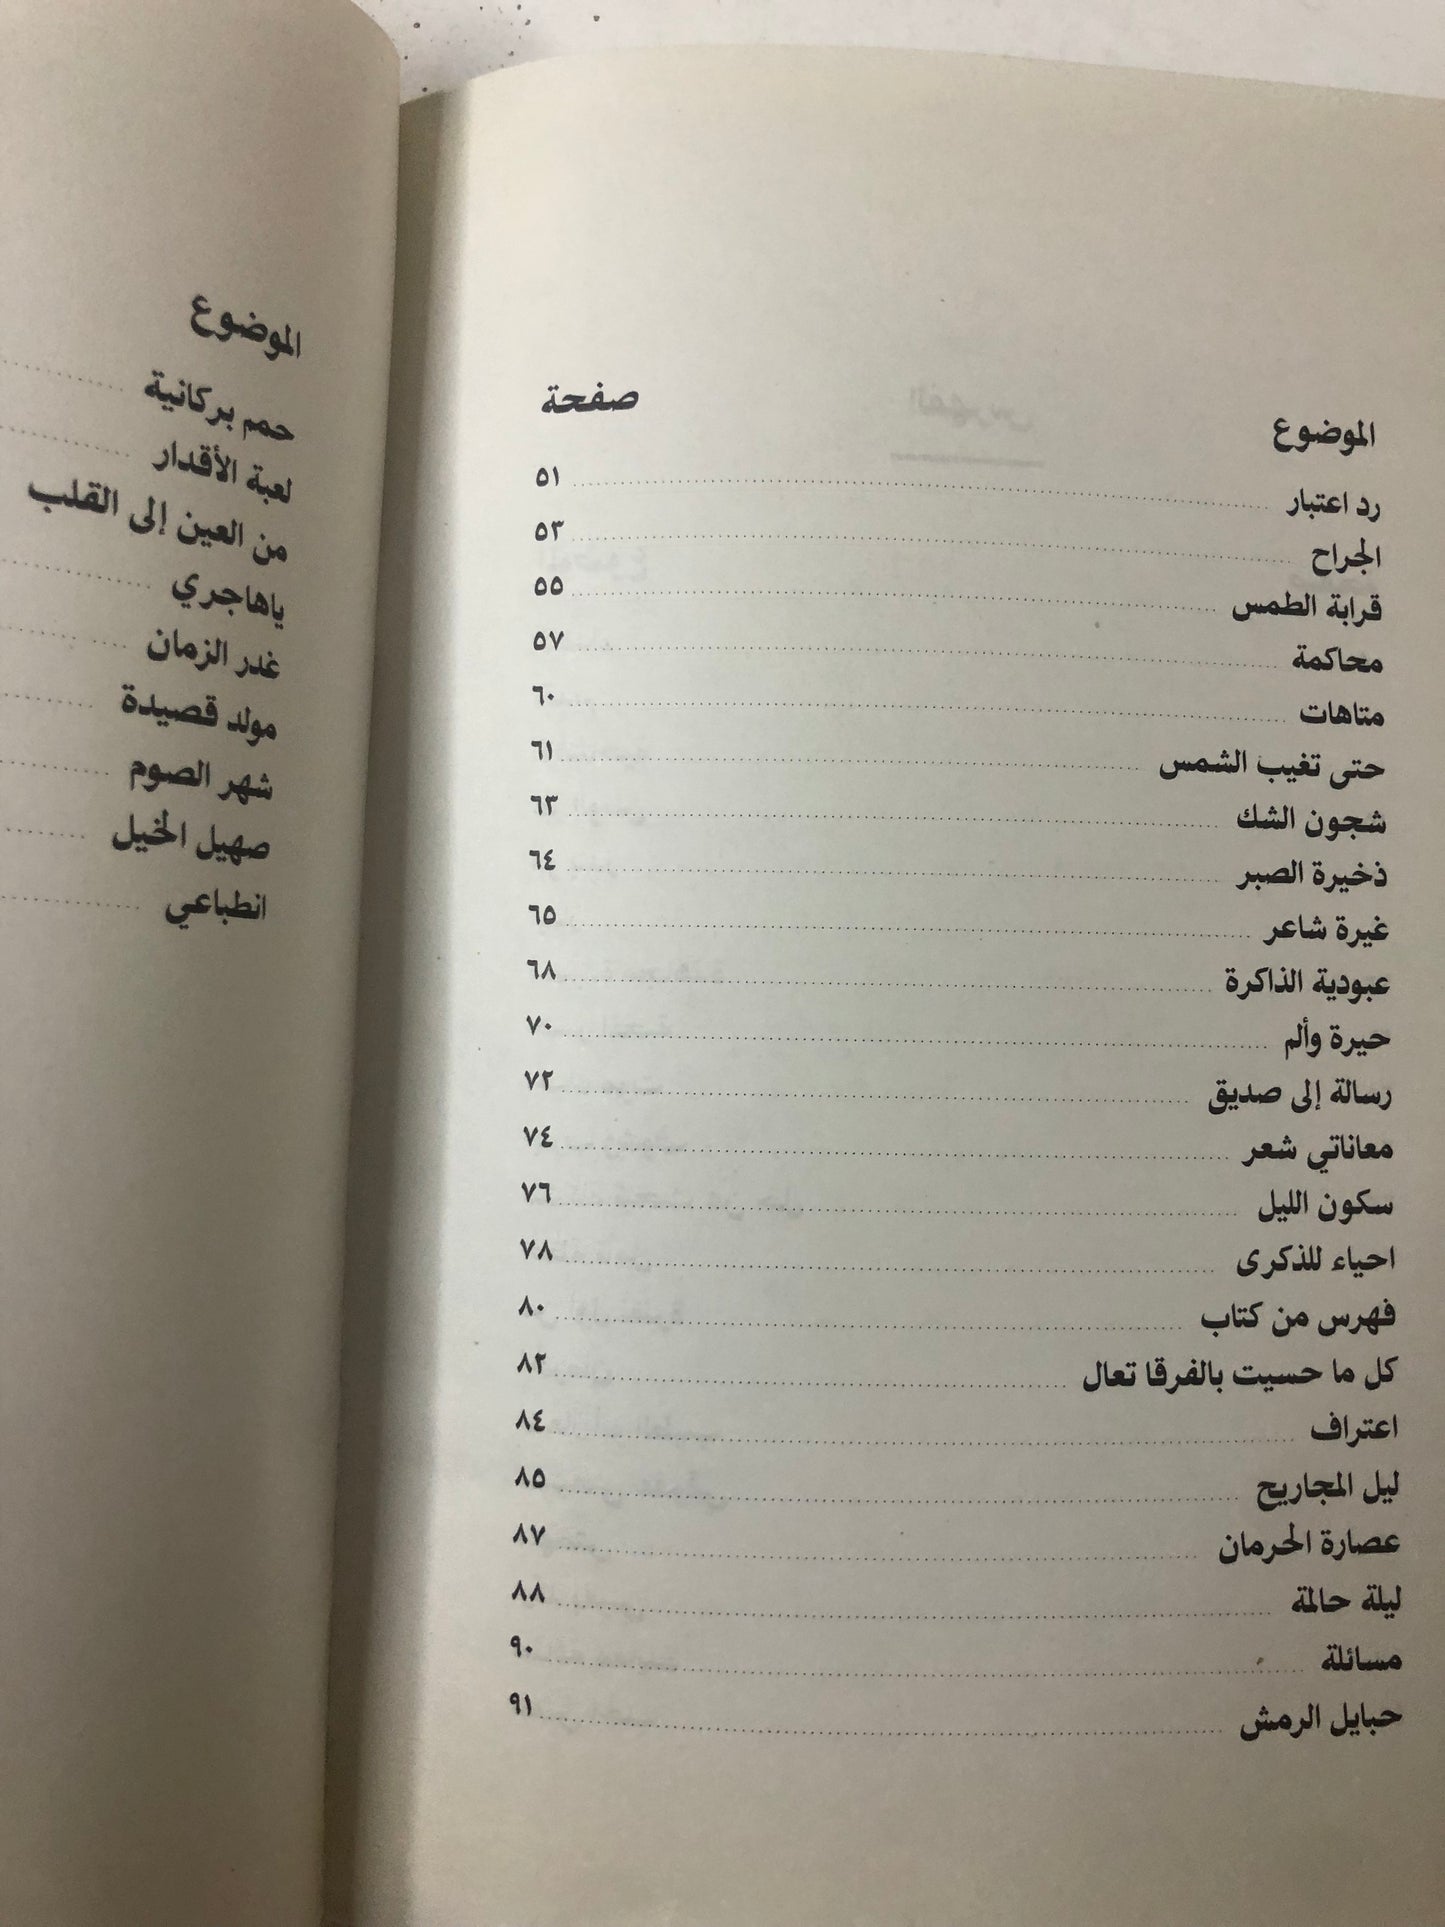 الموضوع صفحة
رد اعتبار ٥١
الجراح ٥٣
قرابة الطمس ٥٥
محاكمة ٥٧
متاهات ٦٠
حتى تغيب الشمس ٦١
شجون الشك ٦٣
ذخيرة الصبر ٦٤
غيرة شاعر ٦٥
عبودية الذاكرة ٦٨
حيرة وألم ٧٠
رسالة إلى صديق ٧٢
معاناتي شعر ٧٤
سكون الليل ٧٦
احياء للذكرى ٧٨
فهرس من كتاب ٨٠
كل ما حسيت بالفرقا تعال ٨٢
اعتراف ٨٤
ليل المجاريح ٨٥
عصارة الحرمان ٨٧
ليلة حالمة ٨٨
مسائلة ٩٠
حبايل الرمش ٩١
الموضوع
حمم بركانية
لعبة الأقدار
من العين إلى القلب
ياهاجري
غدر الزمان
مولد قصيدة
شهر الصوم
صهيل الخيل
انطباعي